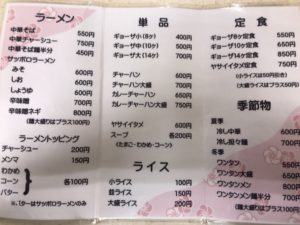 ラーメン
中華そば 550円
中華チャーシュー 750円
中華そば麺半分 450円
サッポロラーメン
みそ 600円
しお 600円
しょうゆ 600円
辛味噌 700円
辛味噌ネギ 800円
(麺大盛りはプラス100円)
ラーメントッピング
チャーシュー 200円
メンマ 150円
わかめ
コーン 各100円
バター
※バターはサッポロラーメンのみ
単品
ギョーザ小(8ヶ) 400円
ギョーザ中(10ヶ) 500円
ギョーザ大(14ヶ) 700円
チャーハン 600円
チャーハン大盛 700円
カレーチャーハン 650円
カレーチャーハン大盛 750円
ヤサイイタメ 600円
スープ 各200円
(たまご・わかめ・コーン)
ライス
小ライス 100円
並ライス 150円
大盛ライス 200円
定食
ギョーザ8ヶ定食 650円
ギョーザ10ヶ定食 750円
ギョーザ14ヶ定食 950円
ヤサイイタメ定食 850円
(小ライスは50円引き)
(大盛はプラス50円)
季節物
夏季
冷し中華 600円
冷し担々麺 700円
冬季
ワンタン 550円
ワンタン大盛 650円
ワンタンメン 600円
ワンタンメン麺半分 500円
(麺大盛りはプラス100円)